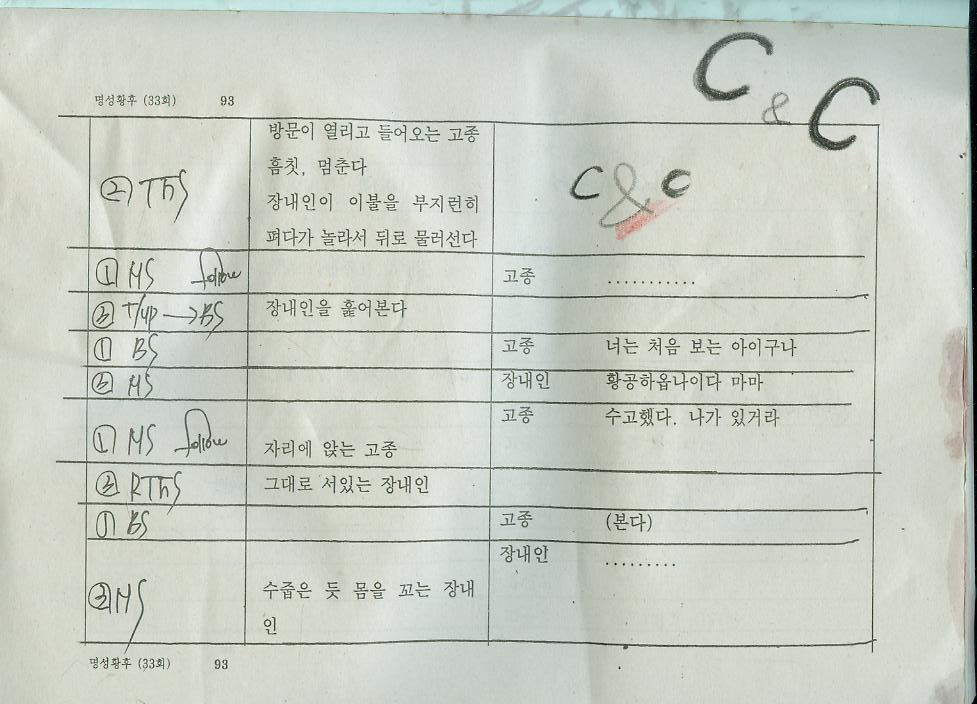 C & C
명성황후 (33회) 93
② Ths
방문이 열리고 들어오는 고종
흠칫, 멈춘다
장내인이 이불을 부지런히
펴다가 놀라서 뒤로 물러선다
C & C
① MS follow
고종 ...........
③ T/up → BS
장내인을 훑어본다
① BS
고종 너는 처음 보는 아이구나
③ MS
장내인 황공하옵나이다 마마
고종 수고했다. 나가 있거라
① MS follow
자리에 앉는 고종
③ RThS
그대로 서있는 장내인
① BS
고종 (본다)
장내안 .........
③ MS
수줍은 듯 몸을 꼬는 장내
인
명성황후 (33회) 93